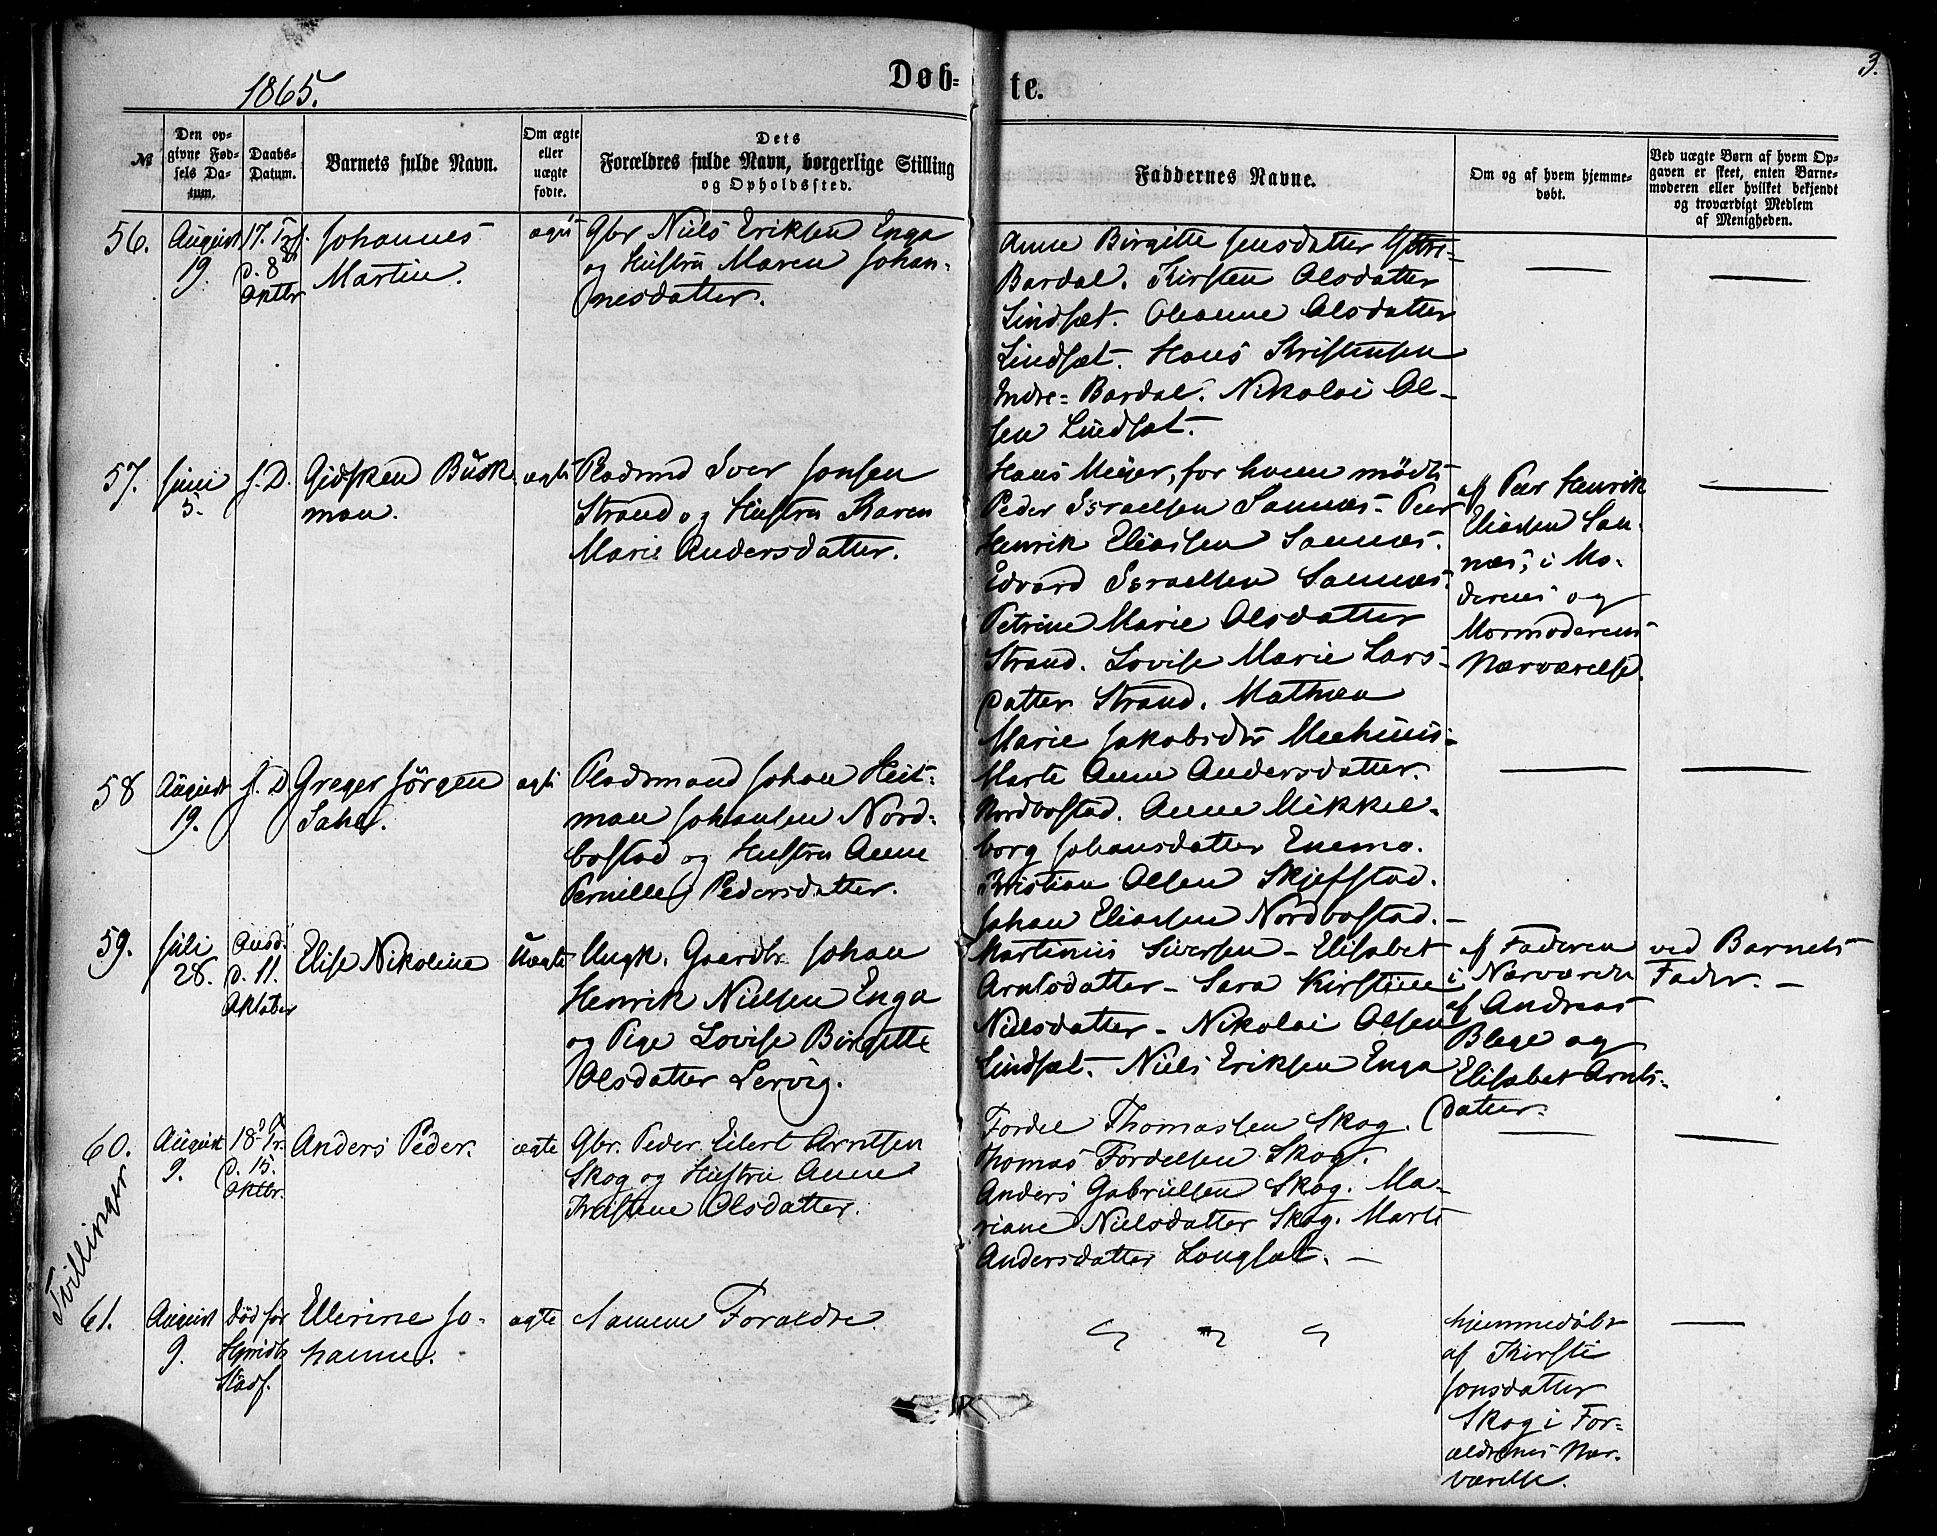 1865.
Døb-
te.
3.
№
Den op-
givne Fød-
sels Da-
tum.
Daabs-
Datum.
Barnets fulde Navn.
Om ægte
eller
uægte
fødte.
Dets
Forældres fulde Navn, borgerlige Stilling
og Opholdssted.
Faddernes Navne.
Om og af hvem hjemme-
døbt.
Ved uægte Børn af hvem Op-
gaven er skeet, enten Barne-
moderen eller hvilket bekjendt
og troværdigt Medlem
af Menigheden.
56.
August
19.
17. Trf.
d. 8de
Oktbr
Johannes
Martin.
ægte
Gbr Niels Eriksen Enga
og Hustru Maren Johan-
nesdatter.
Anne Birgitte Jensdatter Ytre-
Bardal. Kirsten Olsdatter
Lindsæt. Oleanne Olsdatter
Lindsæt. Hans Kristensen
Indre-Bardal. Nikolai Ol-
sen Lindsæt.
57.
Juni
5.
s. D.
Gidsken Buck
man.
ægte
Pladsmd Iver Jonsen
Strand og Hustru Karen
Marie Andersdatter.
Hans Meyer, for hvem mødte
Peder Israelsen Sannæs- Peer
Henrik Eliassen Sannæs.
Edvard Israelsen Sannæs.
Petrine Marie Olsdatter
Strand. Lovise Marie Lars-
datter Strand. Mathea
Marie Jakobsdtr
af Peer Henrik
Eliassen San-
næs, i Mo-
derens og
Mormoderens
Nærværelse.
58
August
19.
s. D.
Greger Jørgen
ægte
Pladsmand Johan Heit-
man Johansen Nord-
bostad og Hustru Anne
Pernille Pedersdatter.
Marte Anne Andersdatter.
Nordbostad. Anne Mikkel-
borg Johansdatter Enemo.
Kristian Olsen Skjefstad.
Johan Eliassen Nordbostad.-
59.
Juli
28.
Onsd.
d. 11.
Oktober
Elise Nikoline
Uægte
Ungk. Gaardbr. Johan
Henrik Nielsen Enga
og Pige Lovise Birgitte
Olsdatter Lervig.
Martinus Sivertsen - Elisabet
Arntsdatter - Sara Kirstine
Nielsdatter - Nikolai Olsen
Lindsæt. - Niels Eriksen Enga
af Faderen
i Nærværelse
af Andreas
Blege og
Elisabet Arnts-
datter.
ved Barnets
Fader. -
Tvillinger
60.
August
9.
18de Tr.
d. 15.
Oktbr.
Anders Peder.
ægte
Gbr. Peder Eilert Arntsen
Skog og Hustru Anne
Kristine Olsdatter.
Fordel Thomassen Skog.
Thomas Fordelsen Skog.
Anders Gabrielsen Skog. Ma-
riane Nielsdatter Skog. Marte
Andersdatter Langsæt. -
61.
August
9.
Død før
Stadf.
Ellerine Jo-
hanne.
ægte
Samme Forældre.
hjemmedøbt
af Kirsti
Jonsdatter
Skog i For-
ældrenes Nær-
værelse.